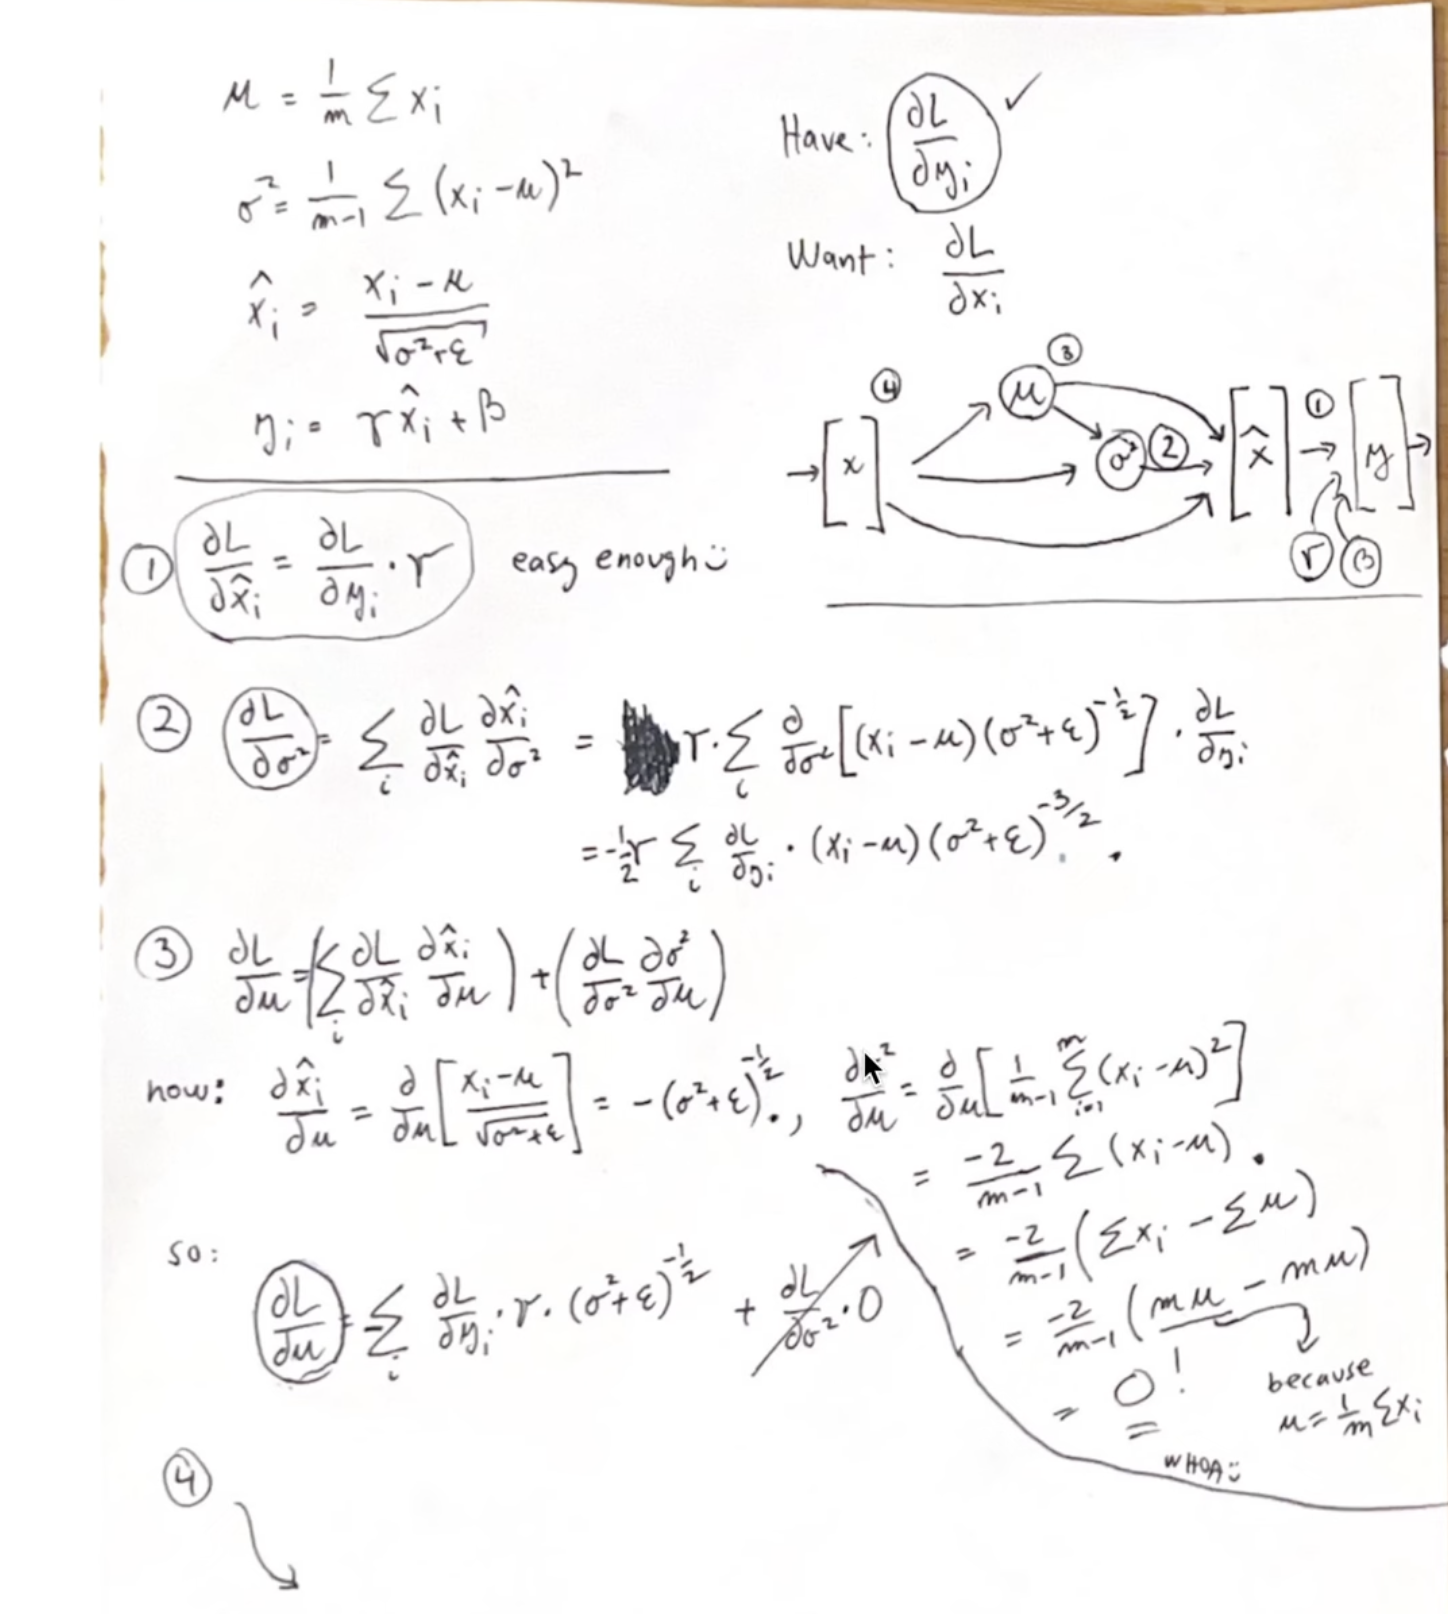 μ = 1/m Σ xᵢ
σ² = 1/(m-1) Σ (xᵢ - μ)²
x̂ᵢ = (xᵢ - μ)/√(σ²+ε)
yᵢ = γx̂ᵢ + β
Have: ∂L/∂yᵢ ✓
Want: ∂L/∂xᵢ
④ ③ ①
→ [x] → μ → σ² ② → [x̂] → [y] →
γ β
① ∂L/∂x̂ᵢ = ∂L/∂yᵢ · γ easy enough :)
② ∂L/∂σ² = Σᵢ ∂L/∂x̂ᵢ ∂x̂ᵢ/∂σ² = γ·Σᵢ ∂/∂σ² [(xᵢ - μ)(σ²+ε)^(-1/2)] · ∂L/∂yᵢ
= -1/2 γ Σᵢ ∂L/∂yᵢ · (xᵢ - μ)(σ²+ε)^(-3/2) .
③ ∂L/∂μ = (Σᵢ ∂L/∂x̂ᵢ ∂x̂ᵢ/∂μ) + (∂L/∂σ² ∂σ²/∂μ)
now: ∂x̂ᵢ/∂μ = ∂/∂μ [(xᵢ - μ)/√(σ²+ε)] = -(σ²+ε)^(-1/2) . , ∂σ²/∂μ = ∂/∂μ [1/(m-1) Σᵢ₌₁ᵐ (xᵢ - μ)²]
= -2/(m-1) Σ (xᵢ - μ) .
= -2/(m-1) (Σxᵢ - Σμ)
= -2/(m-1) (mμ - mμ)
= 0 !
because
μ = 1/m Σxᵢ
WHOA :)
so:
∂L/∂μ = -Σᵢ ∂L/∂yᵢ · γ · (σ²+ε)^(-1/2) + ∂L/∂σ² · 0
④